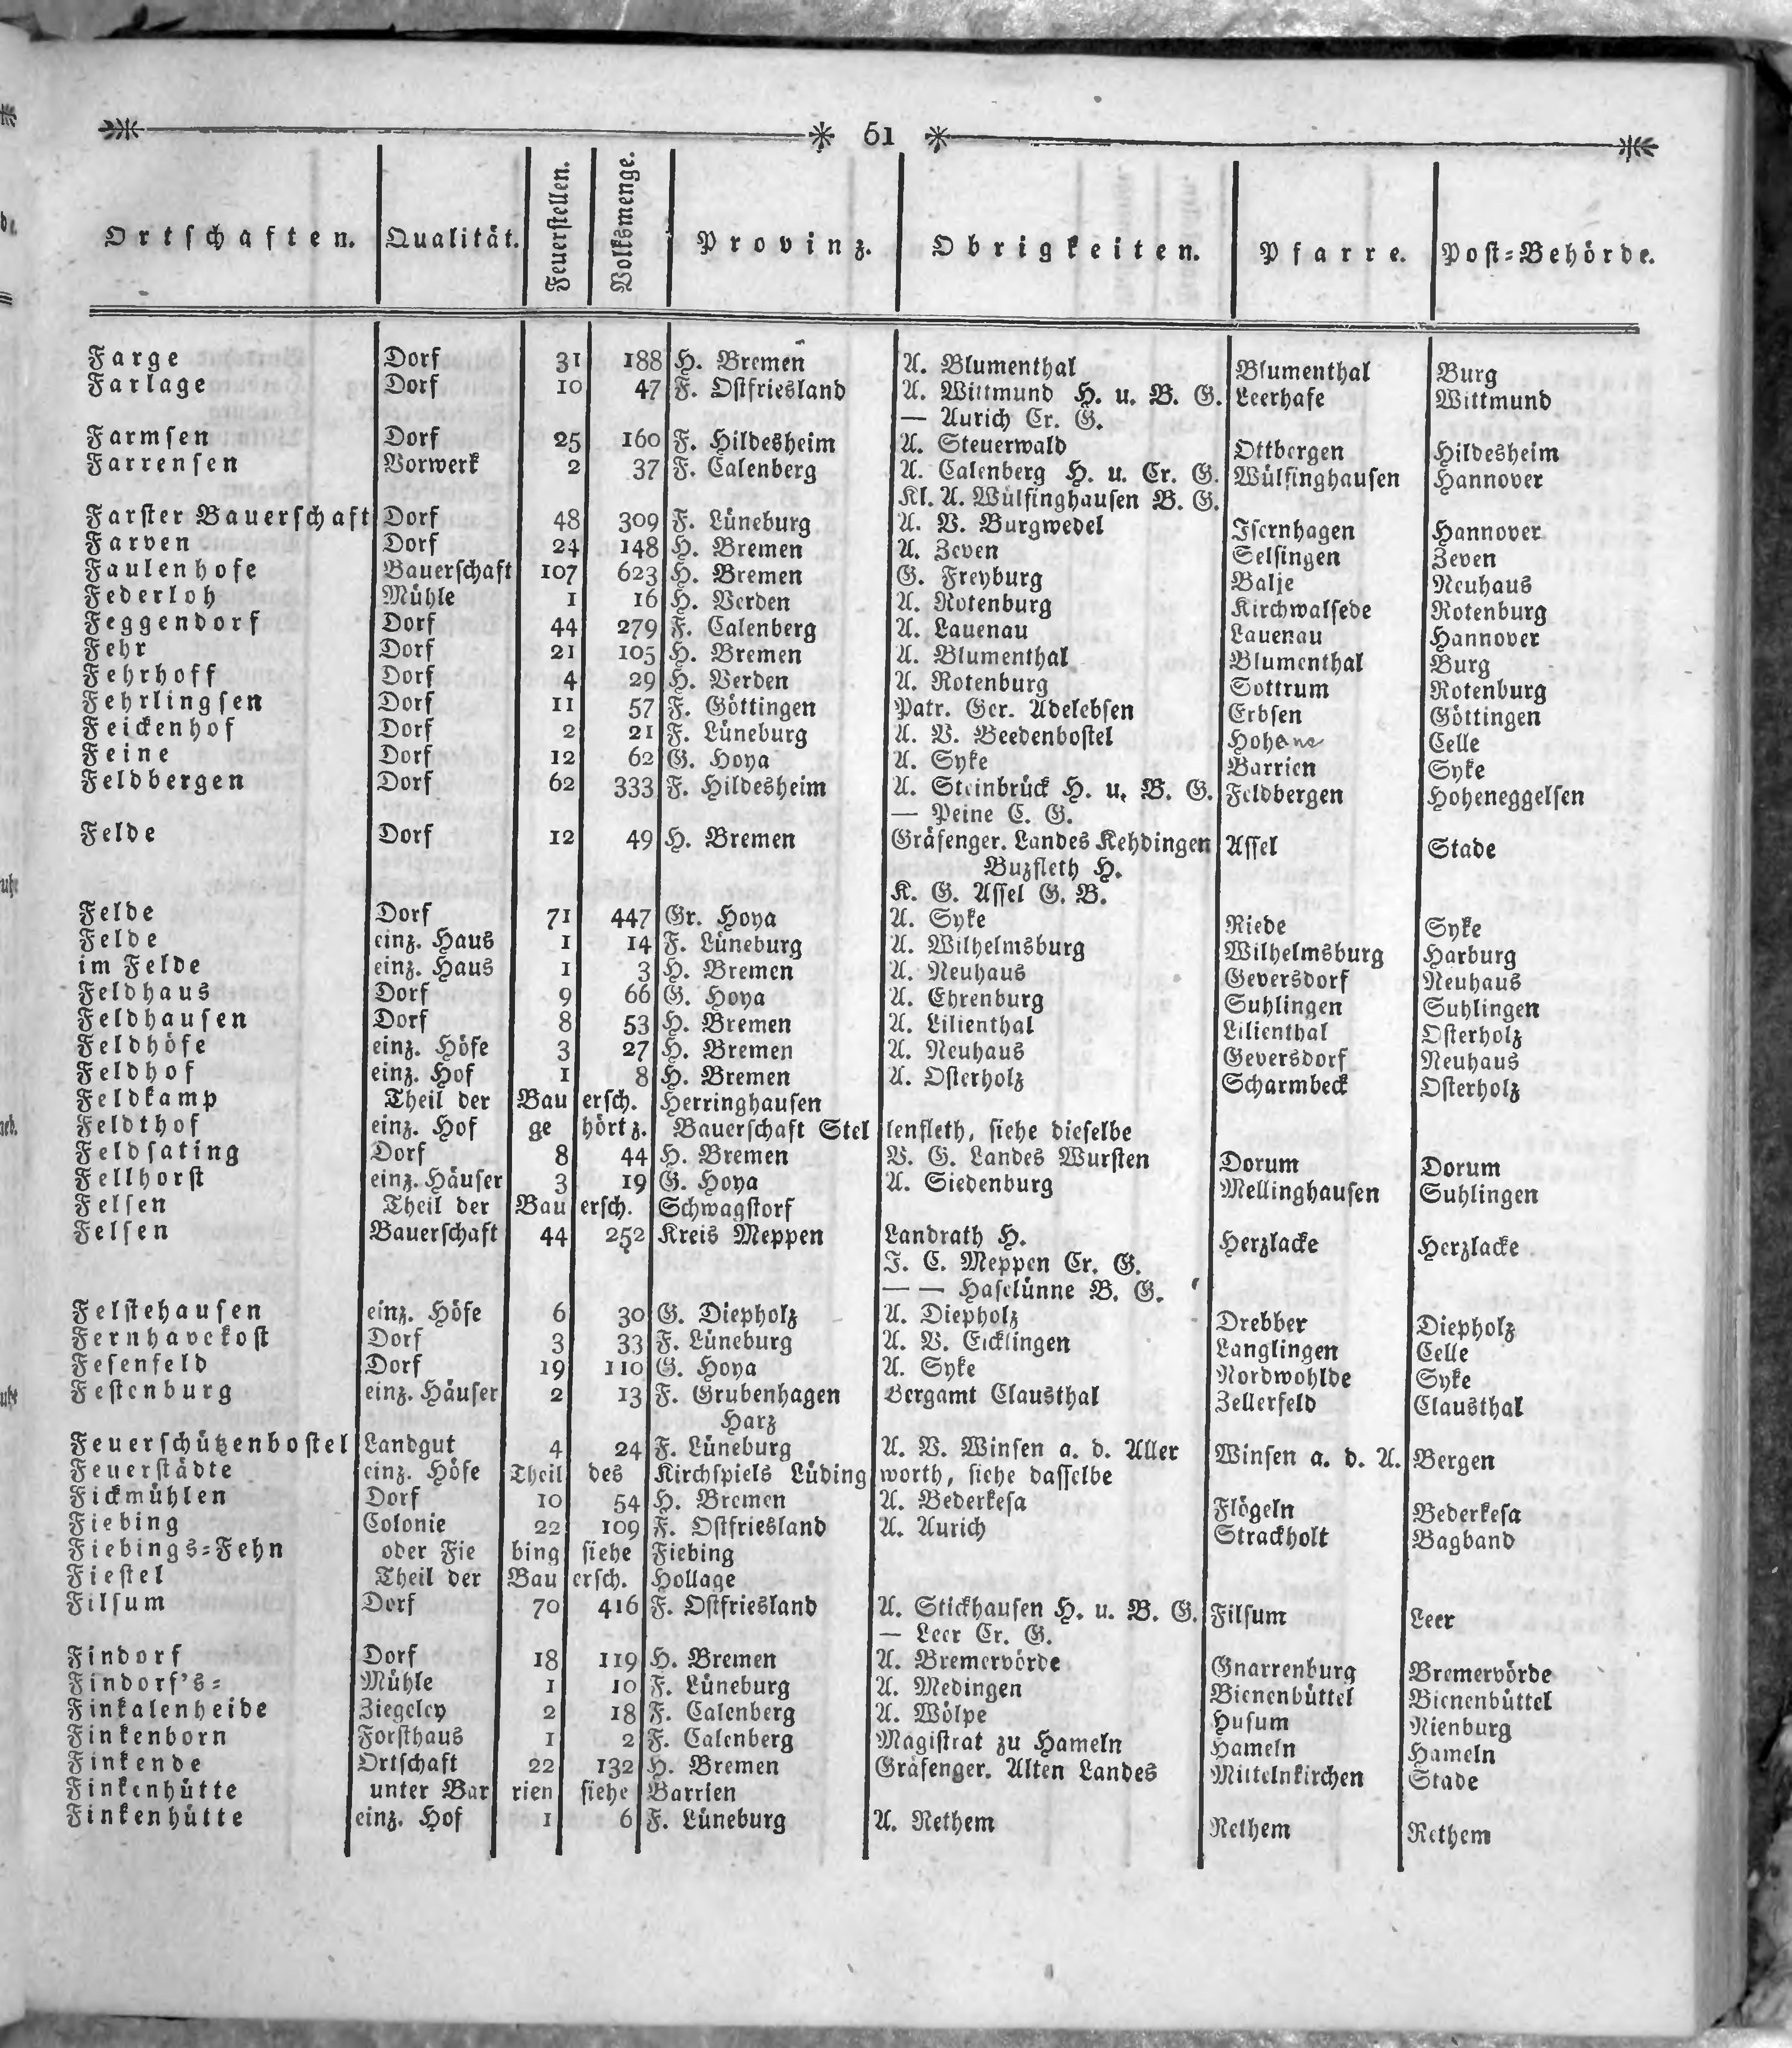 61
Ortschaften. Qualität. Feuerstellen. Volksmenge. Provinz. Obrigkeiten. Pfarre. Post-Behörde.
Farge Dorf 31 188 H. Bremen A. Blumenthal Blumenthal Burg
Farlage Dorf 10 47 F. Ostfriesland A. Wittmund H. u. B. G. Leerhafe Wittmund
— Aurich Cr. G.
Farmsen Dorf 25 160 F. Hildesheim A. Steuerwald Ottbergen Hildesheim
Farrensen Vorwerk 2 37 F. Calenberg A. Calenberg H. u. Cr. G. Wülfinghausen Hannover
Kl. A. Wülfinghausen B. G.
Farster Bauerschaft Dorf 48 309 F. Lüneburg A. V. Burgwedel Isernhagen Hannover
Farven Dorf 24 148 H. Bremen A. Zeven Selsingen Zeven
Faulenhofe Bauerschaft 107 623 H. Bremen G. Freyburg Balje Neuhaus
Federloh Mühle 1 16 H. Verden A. Rotenburg Kirchwalsede Rotenburg
Feggendorf Dorf 44 279 F. Calenberg A. Lauenau Lauenau Hannover
Fehr Dorf 21 105 H. Bremen A. Blumenthal Blumenthal Burg
Fehrhoff Dorf 4 29 H. Verden A. Rotenburg Sottrum Rotenburg
Fehrlingsen Dorf 11 57 F. Göttingen Patr. Ger. Adelebsen Erbsen Göttingen
Feickenhof Dorf 2 21 F. Lüneburg A. V. Beedenbostel Hohene Celle
Feine Dorf 12 62 G. Hoya A. Syke Barrien Syke
Feldbergen Dorf 62 333 F. Hildesheim A. Steinbrück H. u. B. G. Feldbergen Hoheneggelsen
— Peine C. G.
Felde Dorf 12 49 H. Bremen Gräfenger. Landes Kehdingen Assel Stade
Buzfleth H.
K. G. Assel G. B.
Felde Dorf 71 447 Gr. Hoya A. Syke Riede Syke
Felde einz. Haus 1 14 F. Lüneburg A. Wilhelmsburg Wilhelmsburg Harburg
im Felde einz. Haus 1 3 H. Bremen A. Neuhaus Geversdorf Neuhaus
Feldhaus Dorf 9 66 G. Hoya A. Ehrenburg Suhlingen Suhlingen
Feldhausen Dorf 8 53 H. Bremen A. Lilienthal Lilienthal Osterholz
Feldhöfe einz. Höfe 3 27 H. Bremen A. Neuhaus Geversdorf Neuhaus
Feldhof einz. Hof 1 8 H. Bremen A. Osterholz Scharmbeck Osterholz
Feldkamp Theil der Bauersch. Herringhausen
Feldthof einz. Hof gehört z. Bauerschaft Stellenfleth, siehe dieselbe
Feldsating Dorf 8 44 H. Bremen V. G. Landes Wursten Dorum Dorum
Fellhorst einz. Häuser 3 19 G. Hoya A. Siedenburg Mellinghausen Suhlingen
Felsen Theil der Bauersch. Schwagstorf
Felsen Bauerschaft 44 252 Kreis Meppen Landrath H. Herzlacke Herzlacke
J. C. Meppen Cr. G.
— — Haselünne B. G.
Felstehausen einz. Höfe 6 30 G. Diepholz A. Diepholz Drebber Diepholz
Fernhavekost Dorf 3 33 F. Lüneburg A. V. Eicklingen Langlingen Celle
Fesenfeld Dorf 19 110 G. Hoya A. Syke Nordwohlde Syke
Festenburg einz. Häuser 2 13 F. Grubenhagen Bergamt Clausthal Zellerfeld Clausthal
Harz
Feuerschützenbostel Landgut 4 24 F. Lüneburg A. V. Winsen a. d. Aller Winsen a. d. A. Bergen
Feuerstädte einz. Höfe Theil des Kirchspiels Lüdingworth, siehe dasselbe
Fickmühlen Dorf 10 54 H. Bremen A. Bederkesa Flögeln Bederkesa
Fiebing Colonie 22 109 F. Ostfriesland A. Aurich Strackholt Bagband
Fiebings-Fehn oder Fiebing siehe Fiebing
Fiestel Theil der Bauersch. Hollage
Filsum Dorf 70 416 F. Ostfriesland A. Stickhausen H. u. B. G. Filsum Leer
— Leer Cr. G.
Findorf Dorf 18 119 H. Bremen A. Bremervörde Gnarrenburg Bremervörde
Findorf's- Mühle 1 10 F. Lüneburg A. Medingen Bienenbüttel Bienenbüttel
Finkalenheide Ziegeley 2 18 F. Calenberg A. Wölpe Husum Nienburg
Finkenborn Forsthaus 1 2 F. Calenberg Magistrat zu Hameln Hameln Hameln
Finkende Ortschaft 22 132 H. Bremen Gräfenger. Alten Landes Mittelnkirchen Stade
Finkenhütte unter Barrien siehe Barrien
Finkenhütte einz. Hof 1 6 F. Lüneburg A. Rethem Rethem Rethem